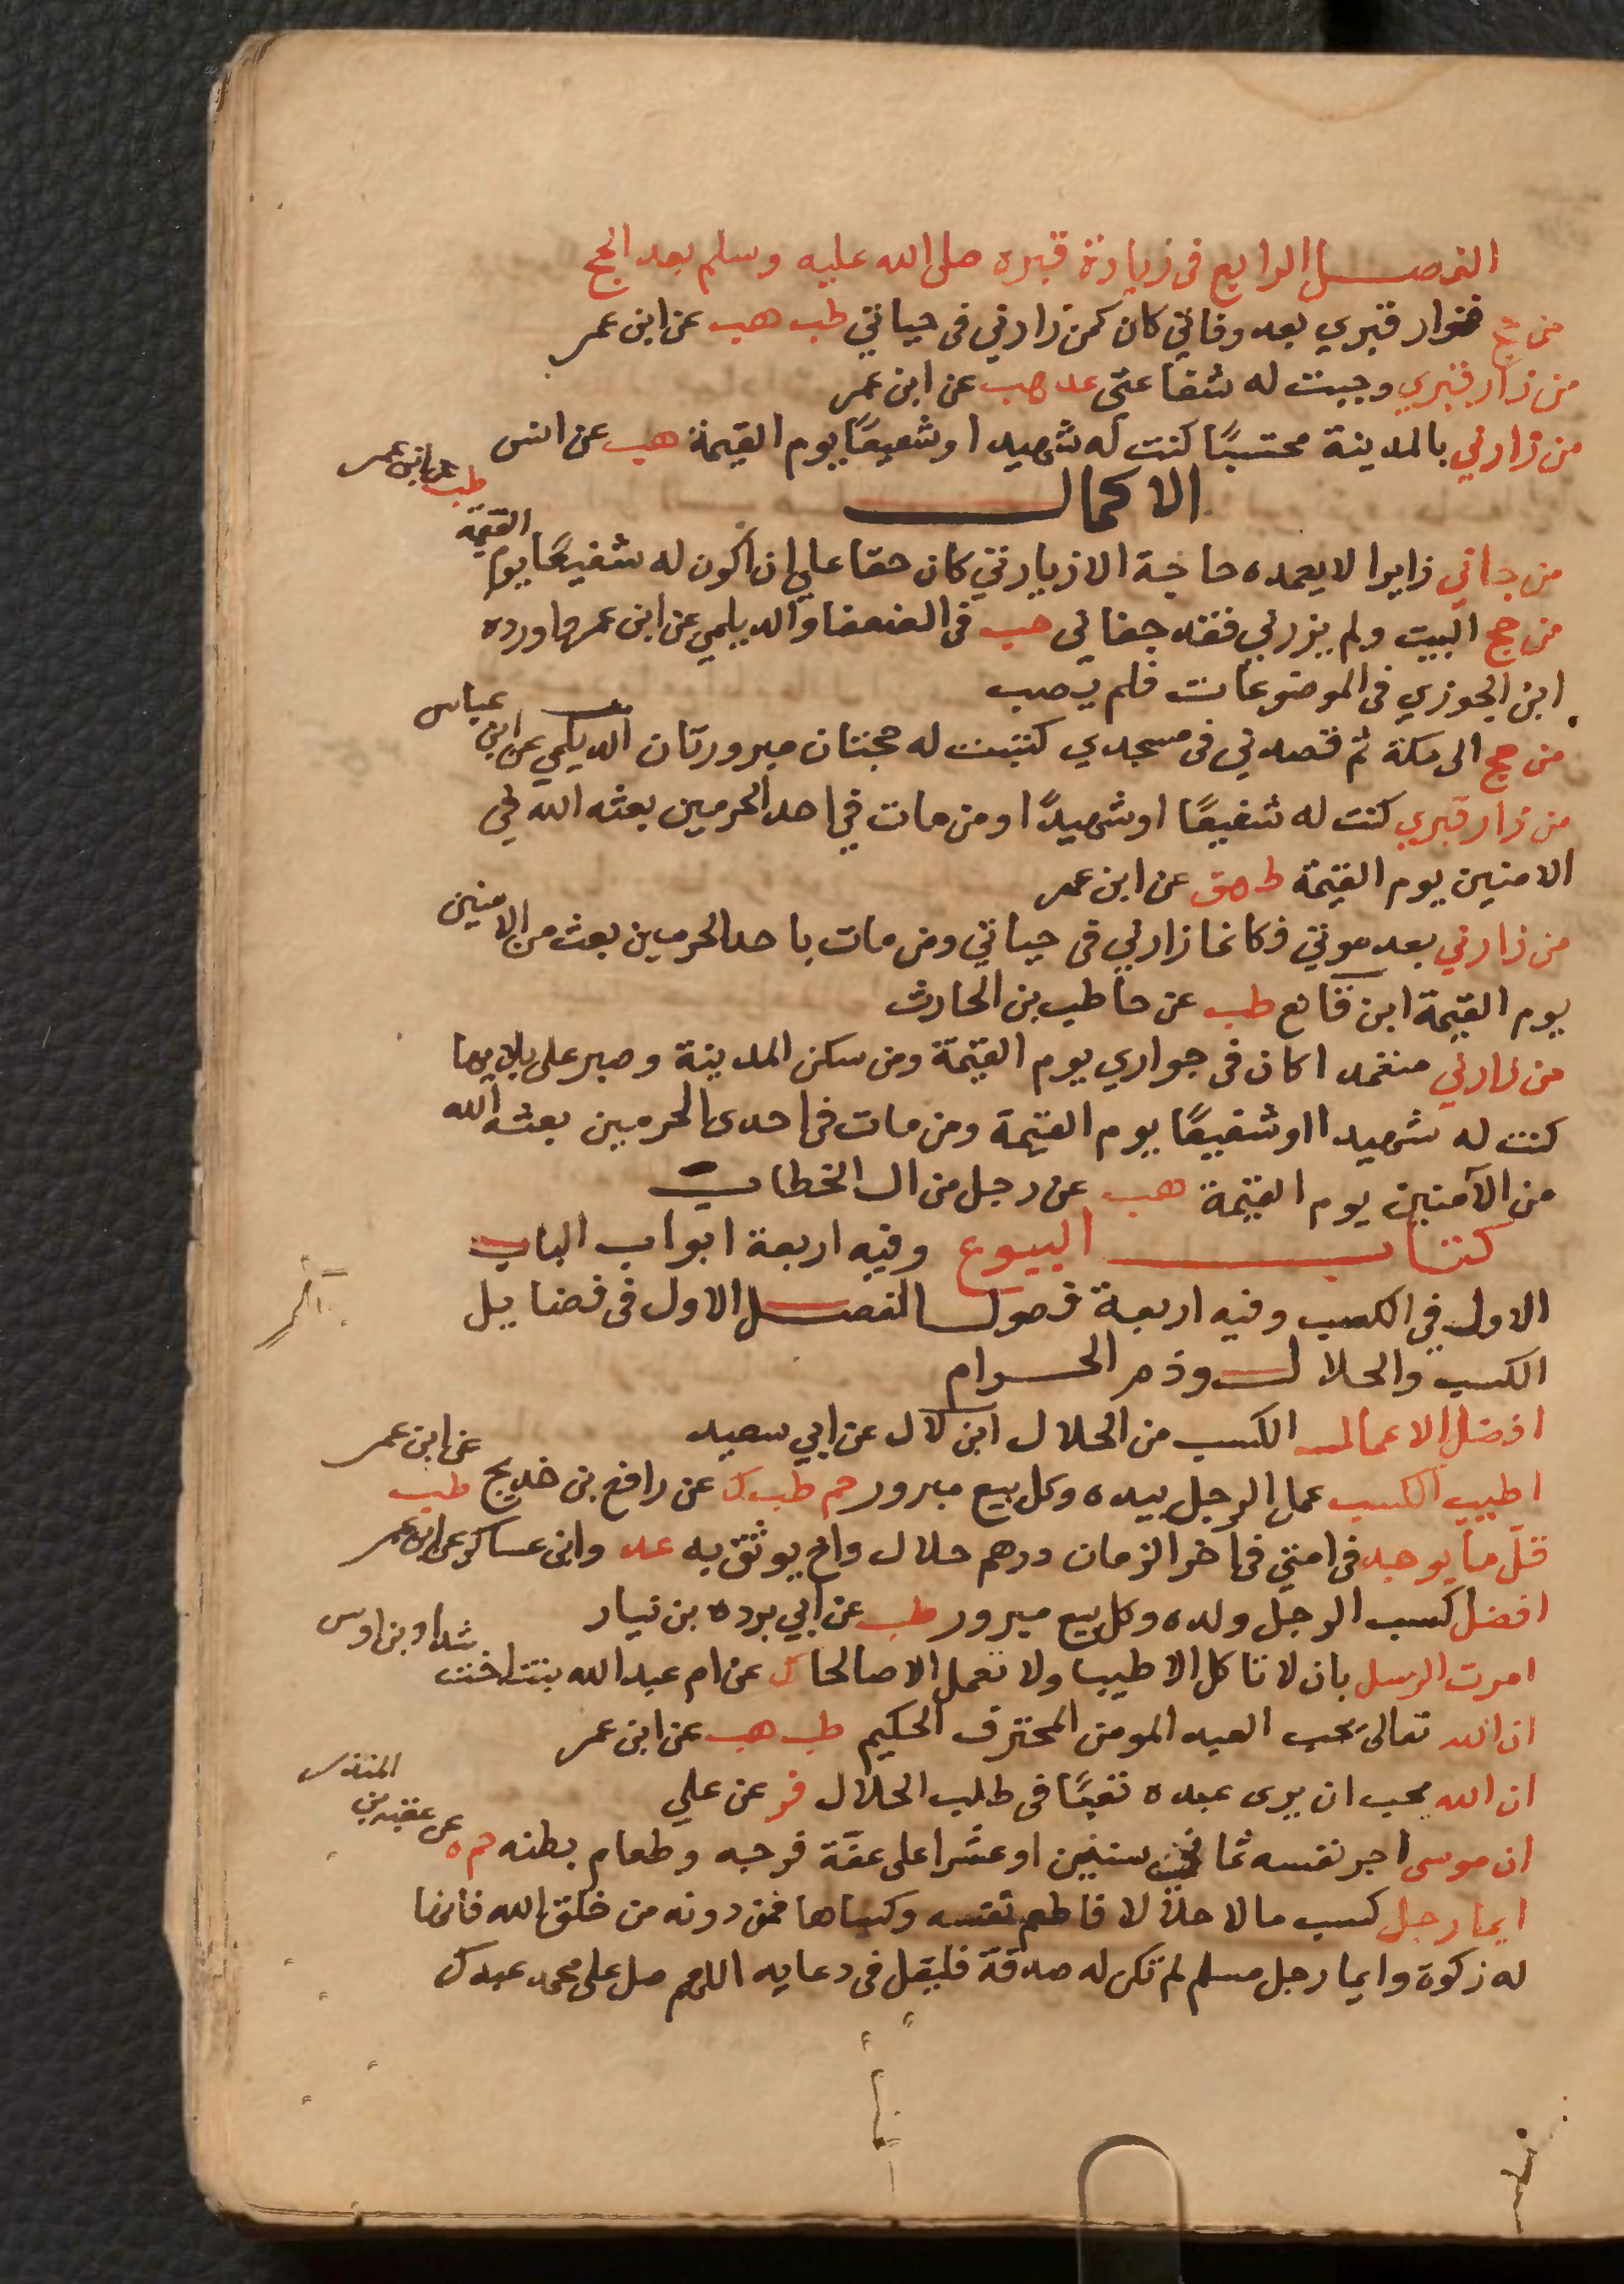 الفصل الرابع في زيارة قبره صلى الله عليه وسلم بعد الحج
من حج فزار قبري بعد وفاتي كان كمن زارني في حياتي طب هب عن ابن عمر
من زار قبري وجبت له شفاعتي عد هب عن ابن عمر
من زارني بالمدينة محتسبًا كنت له شهيدا وشفيعًا يوم القيمة هب عن انس
الاكمال
من جاني زايرا لا يعمده حاجة الا زيارتي كان حقا علي ان اكون له شفيعًا يوم القيمة
طب عن ابن عمر
من حج البيت ولم يزرني فقد جفاني حب في الضعفا والديلمي عن ابن عمر واورده
ابن الجوزي في الموضوعات فلم يصب
من حج الى مكة ثم قصدني في مسجدي كتبت له حجتان مبرورتان الديلمي عن ابن عباس
من زار قبري كنت له شفيعًا او شهيدًا ومن مات في احد الحرمين بعثه الله في
الامنين يوم القيمة ط هق عن ابن عمر
من زارني بعد موتي فكانما زارني في حياتي ومن مات باحد الحرمين بعث من الامنين
يوم القيمة ابن قانع طب عن حاطب بن الحارث
من زارني متعمدا كان في جواري يوم القيمة ومن سكن المدينة وصبر على بلايها
كنت له شهيدا او شفيعًا يوم القيمة ومن مات في احدى الحرمين بعثه الله
من الآمنين يوم القيمة هب عن رجل من ال الخطاب
كتاب البيوع وفيه اربعة ابواب الباب
الاول في الكسب وفيه اربعة فصول الفصل الاول في فضايل
الكسب والحلال وذم الحرام
افضل الاعمال الكسب من الحلال ابن لال عن ابي سعيد
اطيب الكسب عمل الرجل بيده وكل بيع مبرور حم طب ك عن رافع بن خديج طب عن ابن عمر
قلّ ما يوجد في امتي في اخر الزمان درهم حلال واخ يوثق به عد وابن عساكر عن ابن عمر
افضل كسب الرجل ولده وكل بيع مبرور طب عن ابي برده بن نيار
امرت الرسل بان لا تاكل الا طيبا ولا تعمل الا صالحا ك عن ام عبد الله بنت اخت شداد بن اوس
ان الله تعالى يحب العبد المومن المحترف الحكيم طب هب عن ابن عمر
ان الله يحب ان يرى عبده تعبًا في طلب الحلال فر عن علي
ان موسى اجر نفسه ثماني سنين او عشرا على عفّة فرجه وطعام بطنه حم ه عن عتبه بن المنذر
ايما رجل كسب مالا حلالا فاطعم نفسه وكساها فمن دونه من خلق الله فانها
له زكوة وايما رجل مسلم لم تكن له صدقة فليقل في دعايه اللهم صل على محمد عبدك